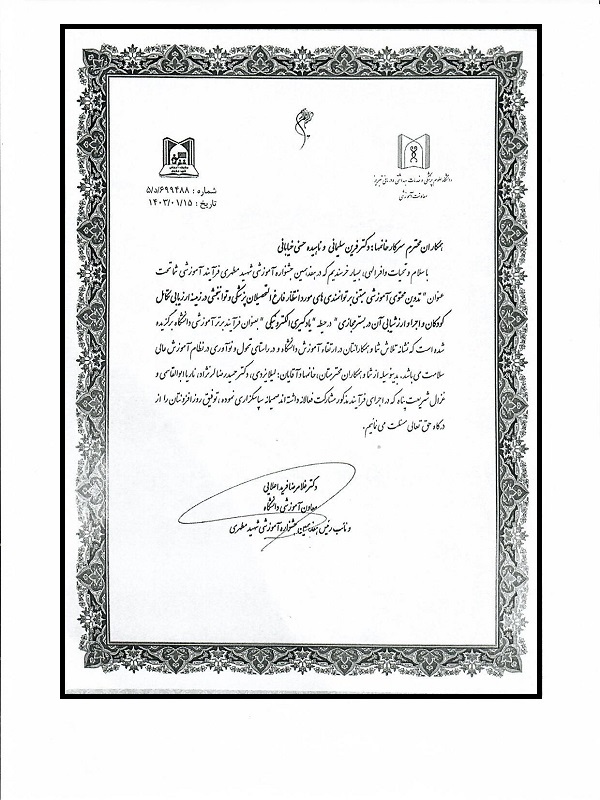 دانشگاه علوم پزشکی و خدمات بهداشتی و درمانی تبریز
معاونت آموزشی
شماره : ۵/د/۶۹۹۴۸۸
تاریخ : ۱۴۰۳/۰۱/۱۵
همکاران محترم سرکار خانمها: دکتر فرین سلیمانی و ناهیده حسنی خیابانی
با سلام و تحیات وافر الهی، بسیار خرسندیم که در هفدهمین جشنواره آموزشی شهید مطهری فرآیند آموزشی شما تحت
عنوان "تدوین محتوی آموزشی مبتنی بر توانمندی های مورد انتظار فارغ التحصیلان پزشکی و توانبخشی در زمینه ارزیابی تکامل
کودکان و اجرا و ارزشیابی آن در بستر مجازی" در حیطه "یادگیری الکترونیکی" بعنوان فرآیند برتر آموزشی دانشگاه برگزیده
شده است که نشانه تلاش شما و همکارانتان در ارتقاء آموزش دانشگاه و در راستای تحول و نوآوری در نظام آموزش عالی
سلامت می باشد. بدینوسیله از شما و همکاران محترمتان، خانمها و آقایان: لیلا یزدی، دکتر حمیدرضا لرنژاد، ناریا ابوالقاسمی و
غزال شریعت پناه که در اجرای فرآیند مذکور مشارکت فعالانه داشته اند صمیمانه سپاسگزاری نموده، توفیق روز افزونتان را از
درگاه حق تعالی مسئلت می نماییم.
دکتر غلامرضا فرید اعلایی
معاون آموزشی دانشگاه
و نائب رئیس هفدهمین جشنواره آموزشی شهید مطهری